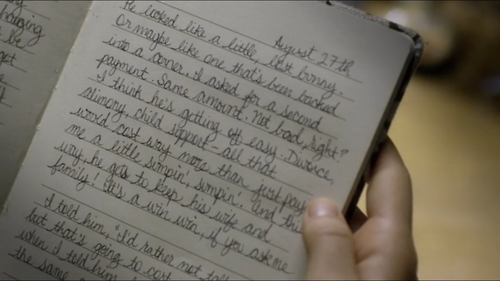 changing
be
get
August 27th
He looked like a little, lost bunny.
Or maybe like one that's been backed
into a corner. I asked for a second
payment. Same amount. Not bad, right?
I think he's getting off easy. Divorce,
alimony, child support - all that
would cost way more than just payin'
me a little simpin', simpin'. And this
way, he gets to keep his wife and
family! It's a win win, if you ask me
I told him, "I'd rather not tell
but that's going to cost
when I told him
the same